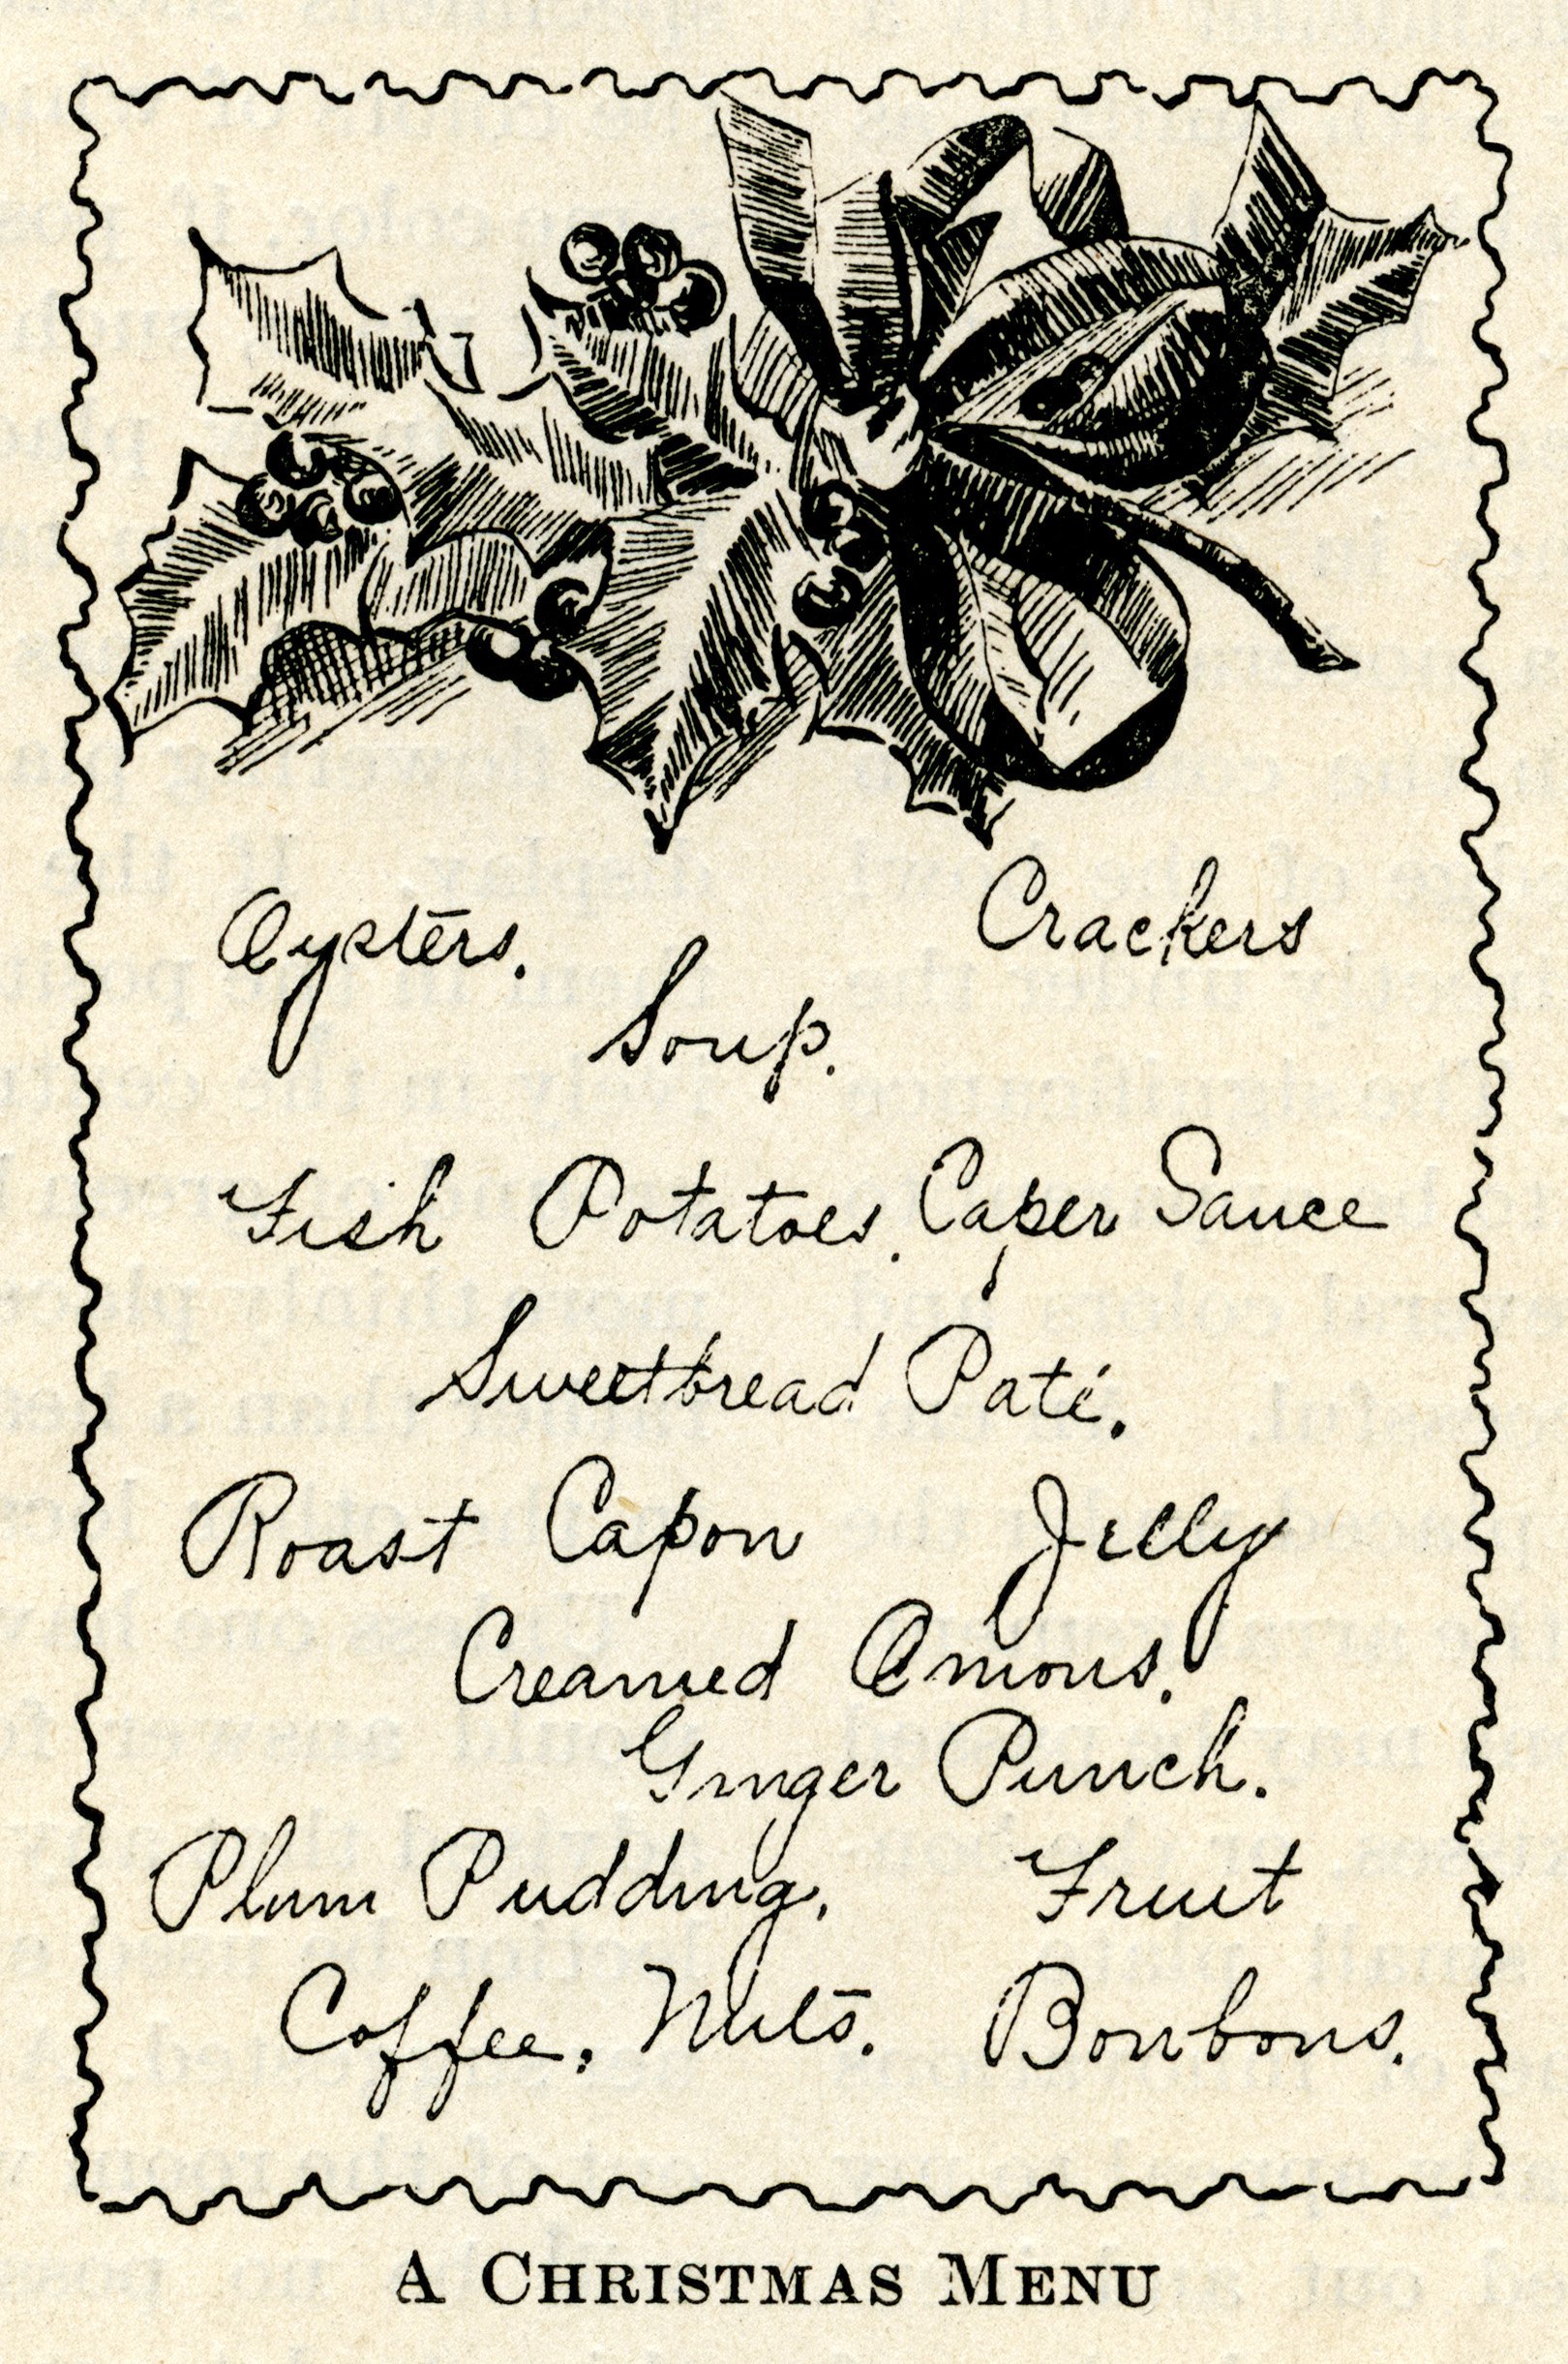 Oysters. Crackers
Soup.
Fish Potatoes. Caper Sauce
Sweetbread Paté.
Roast Capon Jelly
Creamed Onions.
Ginger Punch.
Plum Pudding. Fruit
Coffee, Nuts. Bonbons.
A CHRISTMAS MENU